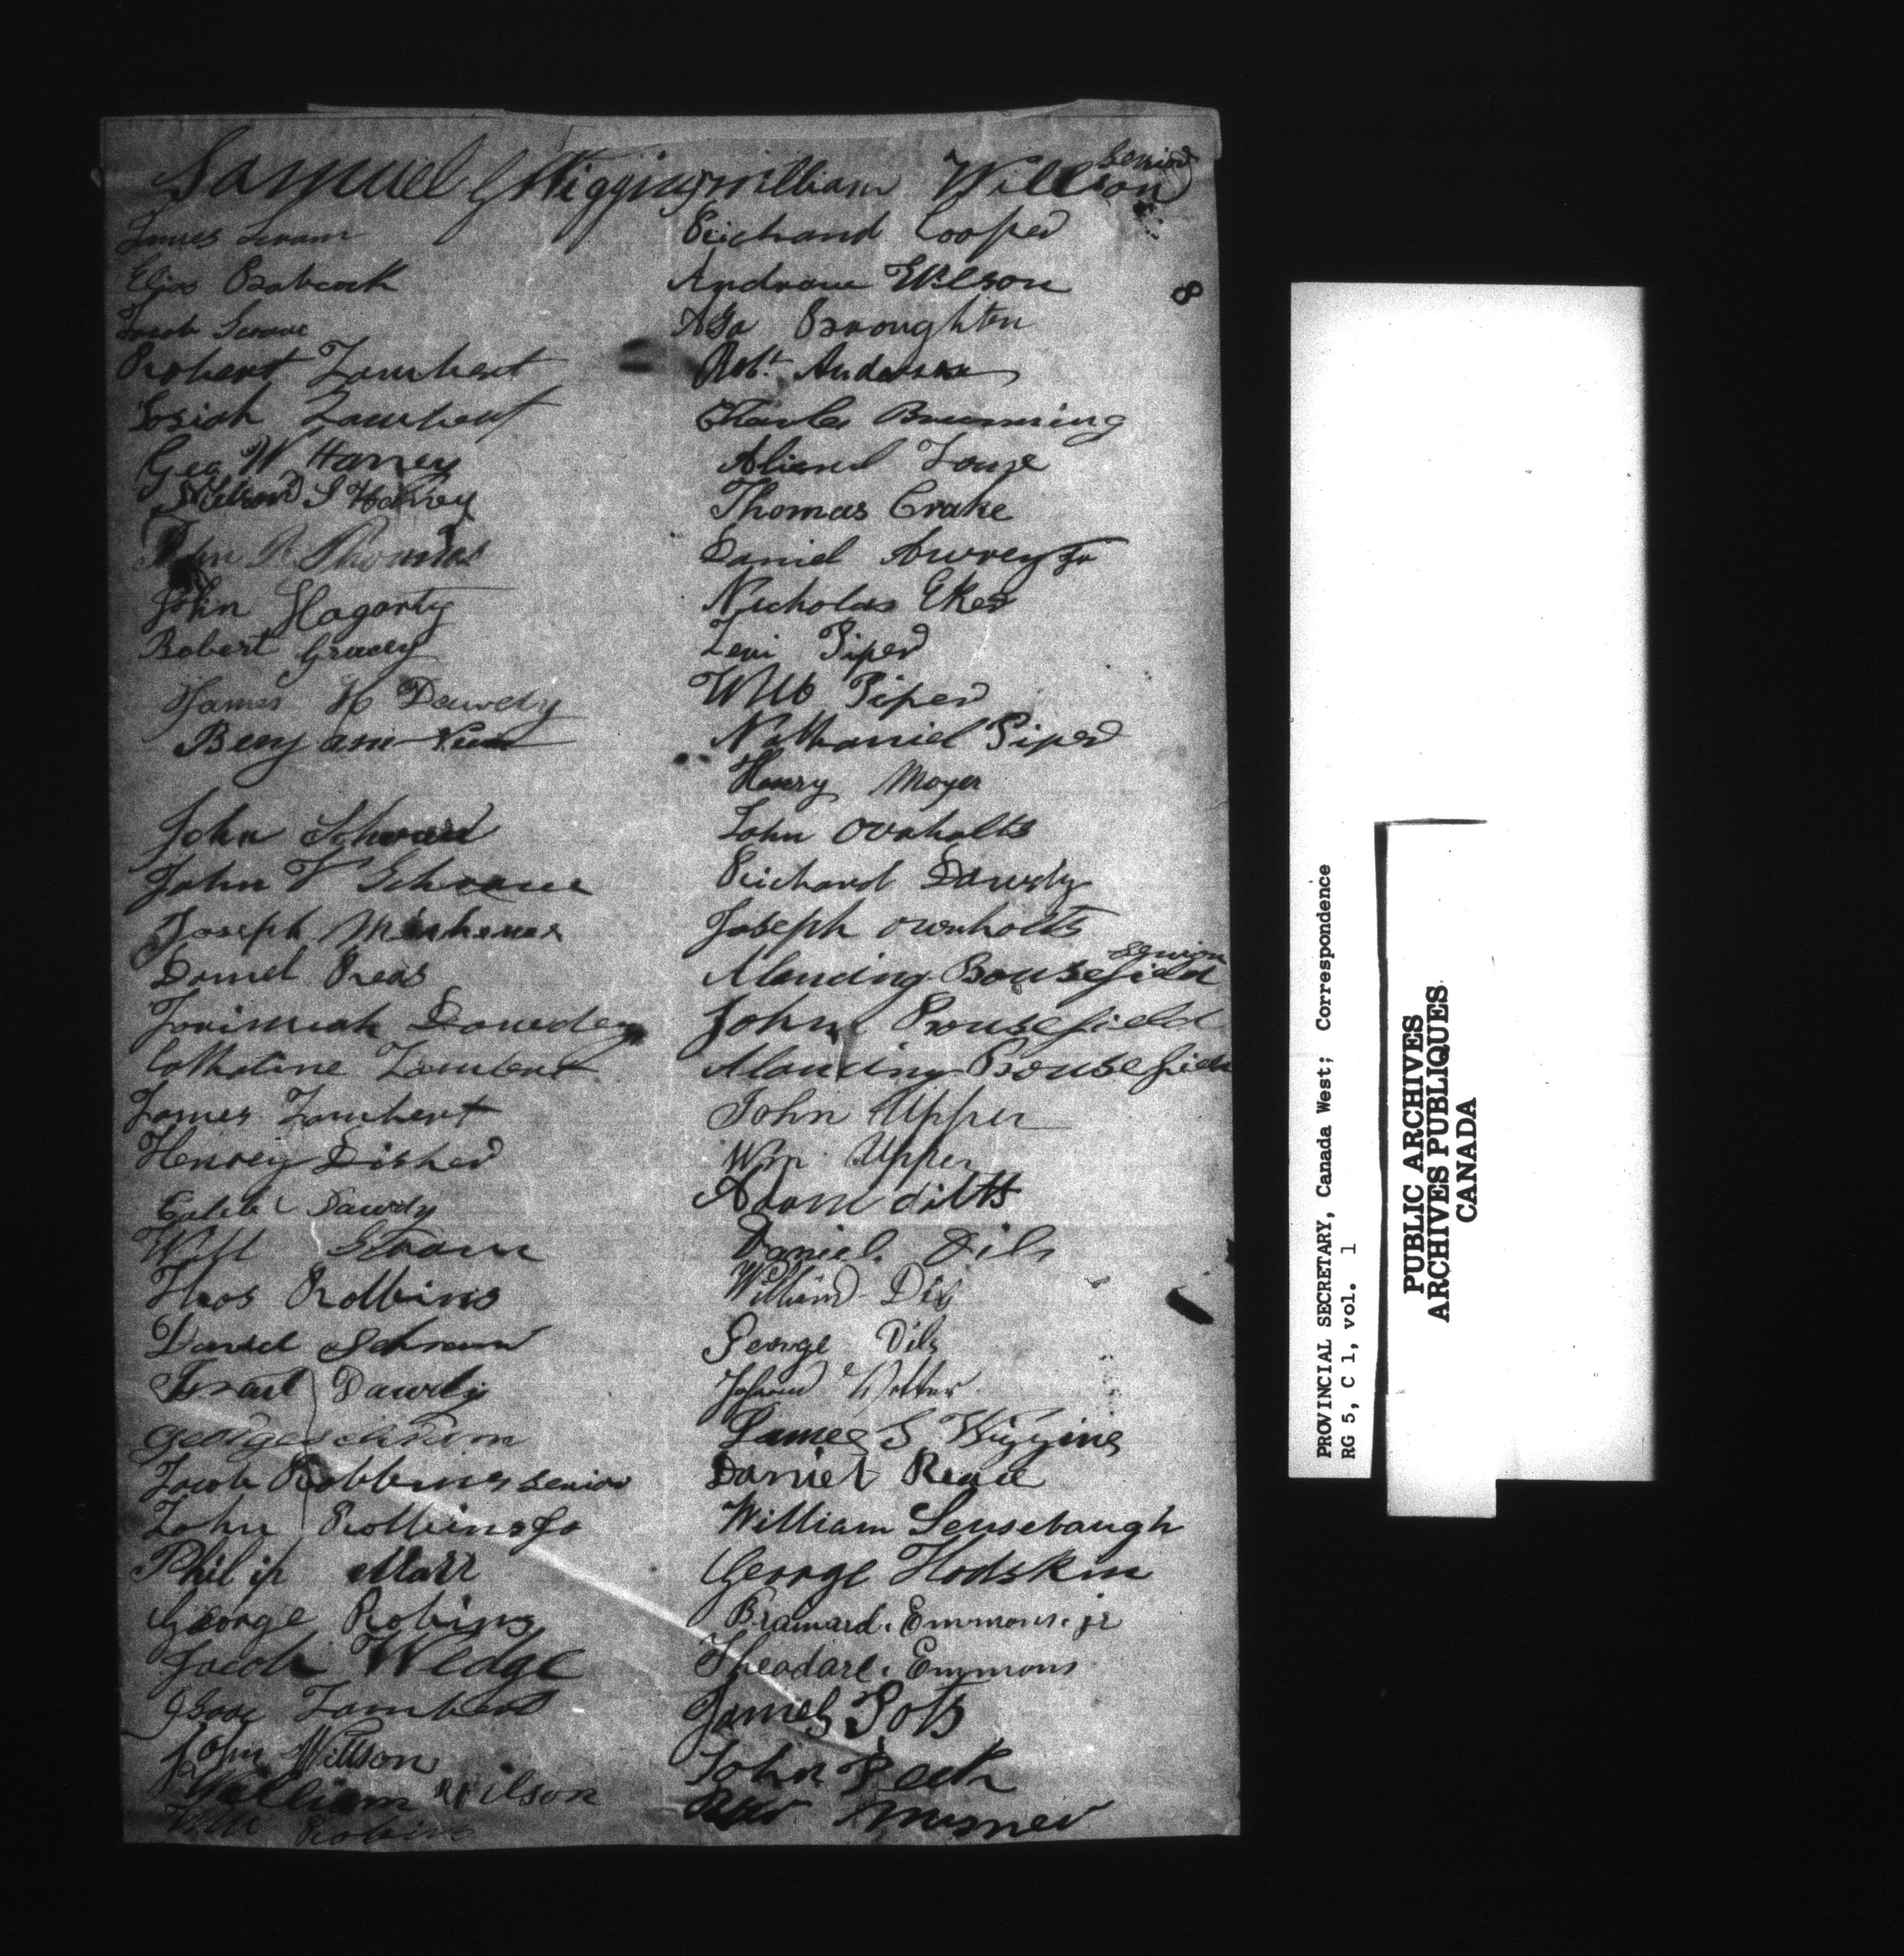 Samuel G Higgins
James Schram
Eljas Babcock
Jacob
Robert Lambert
Josiah Lambert
Geo W Harvey
S Harvey
John R Thomas
John Hagarty
Robert Gracey
James H Dawdy
Benjamin
John
John V Schram
Joseph Mishener
Daniel
Dowdey
Catharine Lambert
James Lambert
Henrey Disher
Caleb Dawdy
Will
Thos Robbins
Daniel Schram
Israel Dawdy
George Schram
Jacob Robbins senior
John Robbins Jr
Philip Marr
George Robins
Jacob Wedge
Isaac Lambert
John Willson
William Wilson
Wm Robins
William Willson senior
Richard Cooper
Andrew Wilson
8
Asa Broughton
Robt Anderson
Charles
Thomas Crake
Daniel Awrey Jr
Nicholas Eker
Levi Piper
Piper
Nathaniel Piper
Henry Moyer
John Ovnholts
Richard Dawdy
Joseph ovnholts
Mancing Bousefield senior
John Bousefield
Mancing Bousefield
John Upper
Wm Upper
Adam dilts
Daniel Dils
William Dils
George Dils
James S Wiggins
Daniel Read
William Sensebaugh
George Hodskin
Brainard. Emmons. jr
Theodare. Emmons
James Pots
John Peck
Misner
PROVINCIAL SECRETARY, Canada West; Correspondence
RG 5, C 1, vol. 1
PUBLIC ARCHIVES
ARCHIVES PUBLIQUES
CANADA